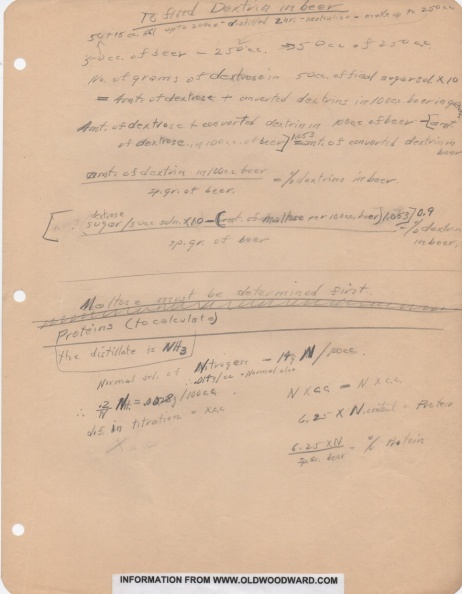 To find Dextrin in beer
50 + 15 cc. HCl up to 200cc - distilled 2 hr. - neutralize - make up to 250cc
of beer - 250cc. 50cc of 250cc.
No. of grams of dextrose in 50cc. of final sugar sol X 10
= Amt. of dextrose + converted dextrins in 100cc. beer in
Amt. of dextrose + converted dextrin in 100cc of beer - [amt
of dextrose in 100cc. of beer] 1.053 = amt. of converted dextrin in
beer
amt. of dextrin in 100cc beer = % dextrins in beer.
sp. gr. of beer.
dextrose
[sugar/50cc soln. X 10 - (amt. of maltose per 100cc. beer) 1.053] 0.9
sp. gr. of beer
= % dextrin
in beer.
Maltose must be determined first.
Proteins (to calculate)
the distillate is NH3
Normal sol. of Nitrogen - 14g N/100cc.
= Normal
∴ = .0028g/100cc
N X cc = N X cc.
in titration = X cc
6.25 X N = Protein
6.25 X N = % Protein
beer
INFORMATION FROM WWW.OLDWOODWARD.COM